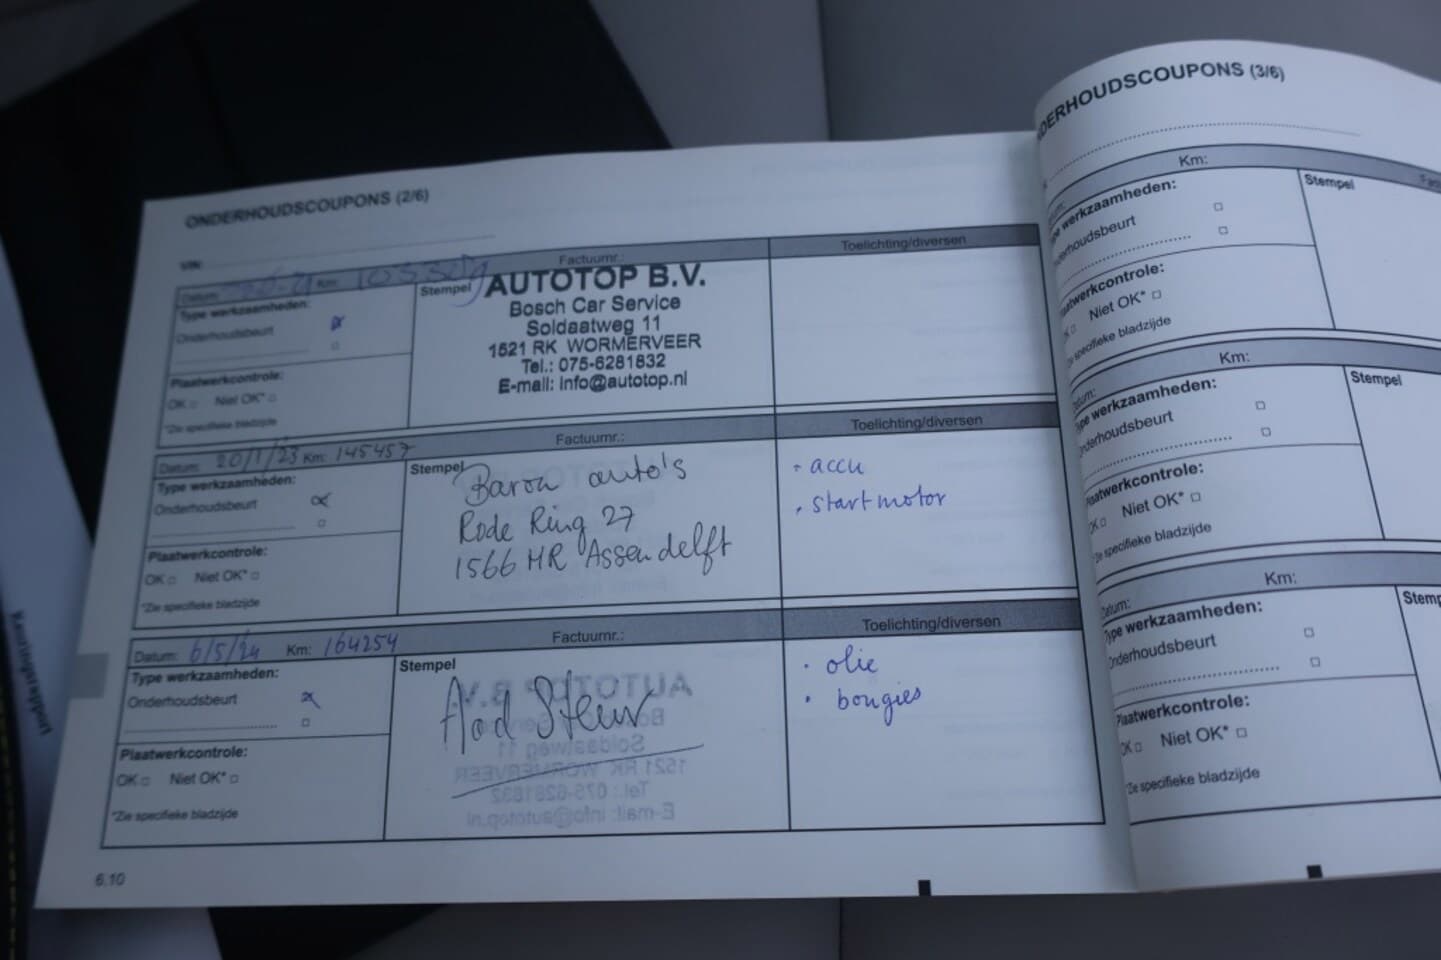 ONDERHOUDSCOUPONS (2/6)
VIN:
Datum: Km: Factuurnr.: Toelichting/diversen
Type werkzaamheden:
Onderhoudsbeurt
Plaatwerkcontrole:
OK Niet OK*
*Zie specifieke bladzijde
Stempel
AUTOTOP B.V.
Bosch Car Service
Soldaatweg 11
1521 RK WORMERVEER
Tel.: 075-6281832
E-mail: info@autotop.nl
Datum: 20/1/23 Km: 145457 Factuurnr.: Toelichting/diversen
Type werkzaamheden:
Onderhoudsbeurt
Plaatwerkcontrole:
OK Niet OK*
*Zie specifieke bladzijde
Stempel
Baron auto's
Rode Ring 27
1566 MR Assendelft
· accu
· startmotor
Datum: 6/5/24 Km: 164254 Factuurnr.: Toelichting/diversen
Type werkzaamheden:
Onderhoudsbeurt
Plaatwerkcontrole:
OK Niet OK*
*Zie specifieke bladzijde
Stempel
· olie
· bougies
6.10
DERHOUDSCOUPONS (3/6)
Km:
Type werkzaamheden:
Onderhoudsbeurt
Plaatwerkcontrole:
OK Niet OK*
Zie specifieke bladzijde
Stempel
Datum: Km:
Type werkzaamheden:
Onderhoudsbeurt
Plaatwerkcontrole:
OK Niet OK*
*Zie specifieke bladzijde
Stempel
Datum: Km:
Type werkzaamheden:
Onderhoudsbeurt
Plaatwerkcontrole:
OK Niet OK*
*Zie specifieke bladzijde
Stemp